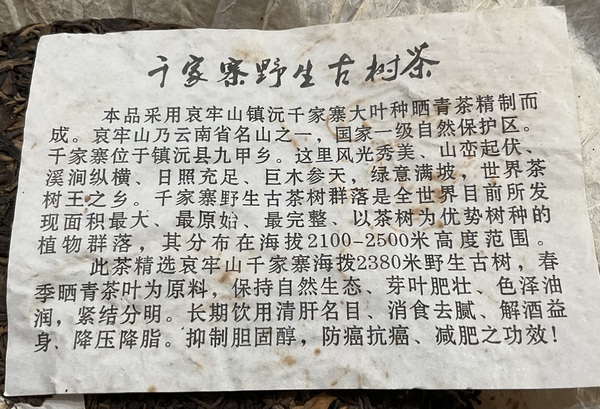 千家寨野生古树茶
本品采用哀牢山镇沅千家寨大叶种晒青茶精制而
成。哀牢山乃云南省名山之一，国家一级自然保护区。
千家寨位于镇沅县九甲乡。这里风光秀美、山峦起伏、
溪涧纵横、日照充足、巨木参天，绿意满坡，世界茶
树王之乡。千家寨野生古茶树群落是全世界目前所发
现面积最大、最原始、最完整、以茶树为优势树种的
植物群落，其分布在海拔2100-2500米高度范围。
此茶精选哀牢山千家寨海拨2380米野生古树，春
季晒青茶叶为原料，保持自然生态、芽叶肥壮、色泽油
润，紧结分明。长期饮用清肝名目、消食去腻、解酒益
身、降压降脂。抑制胆固醇，防癌抗癌、减肥之功效！